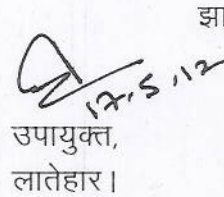 झा
17.5.12
उपायुक्त,
लातेहार।